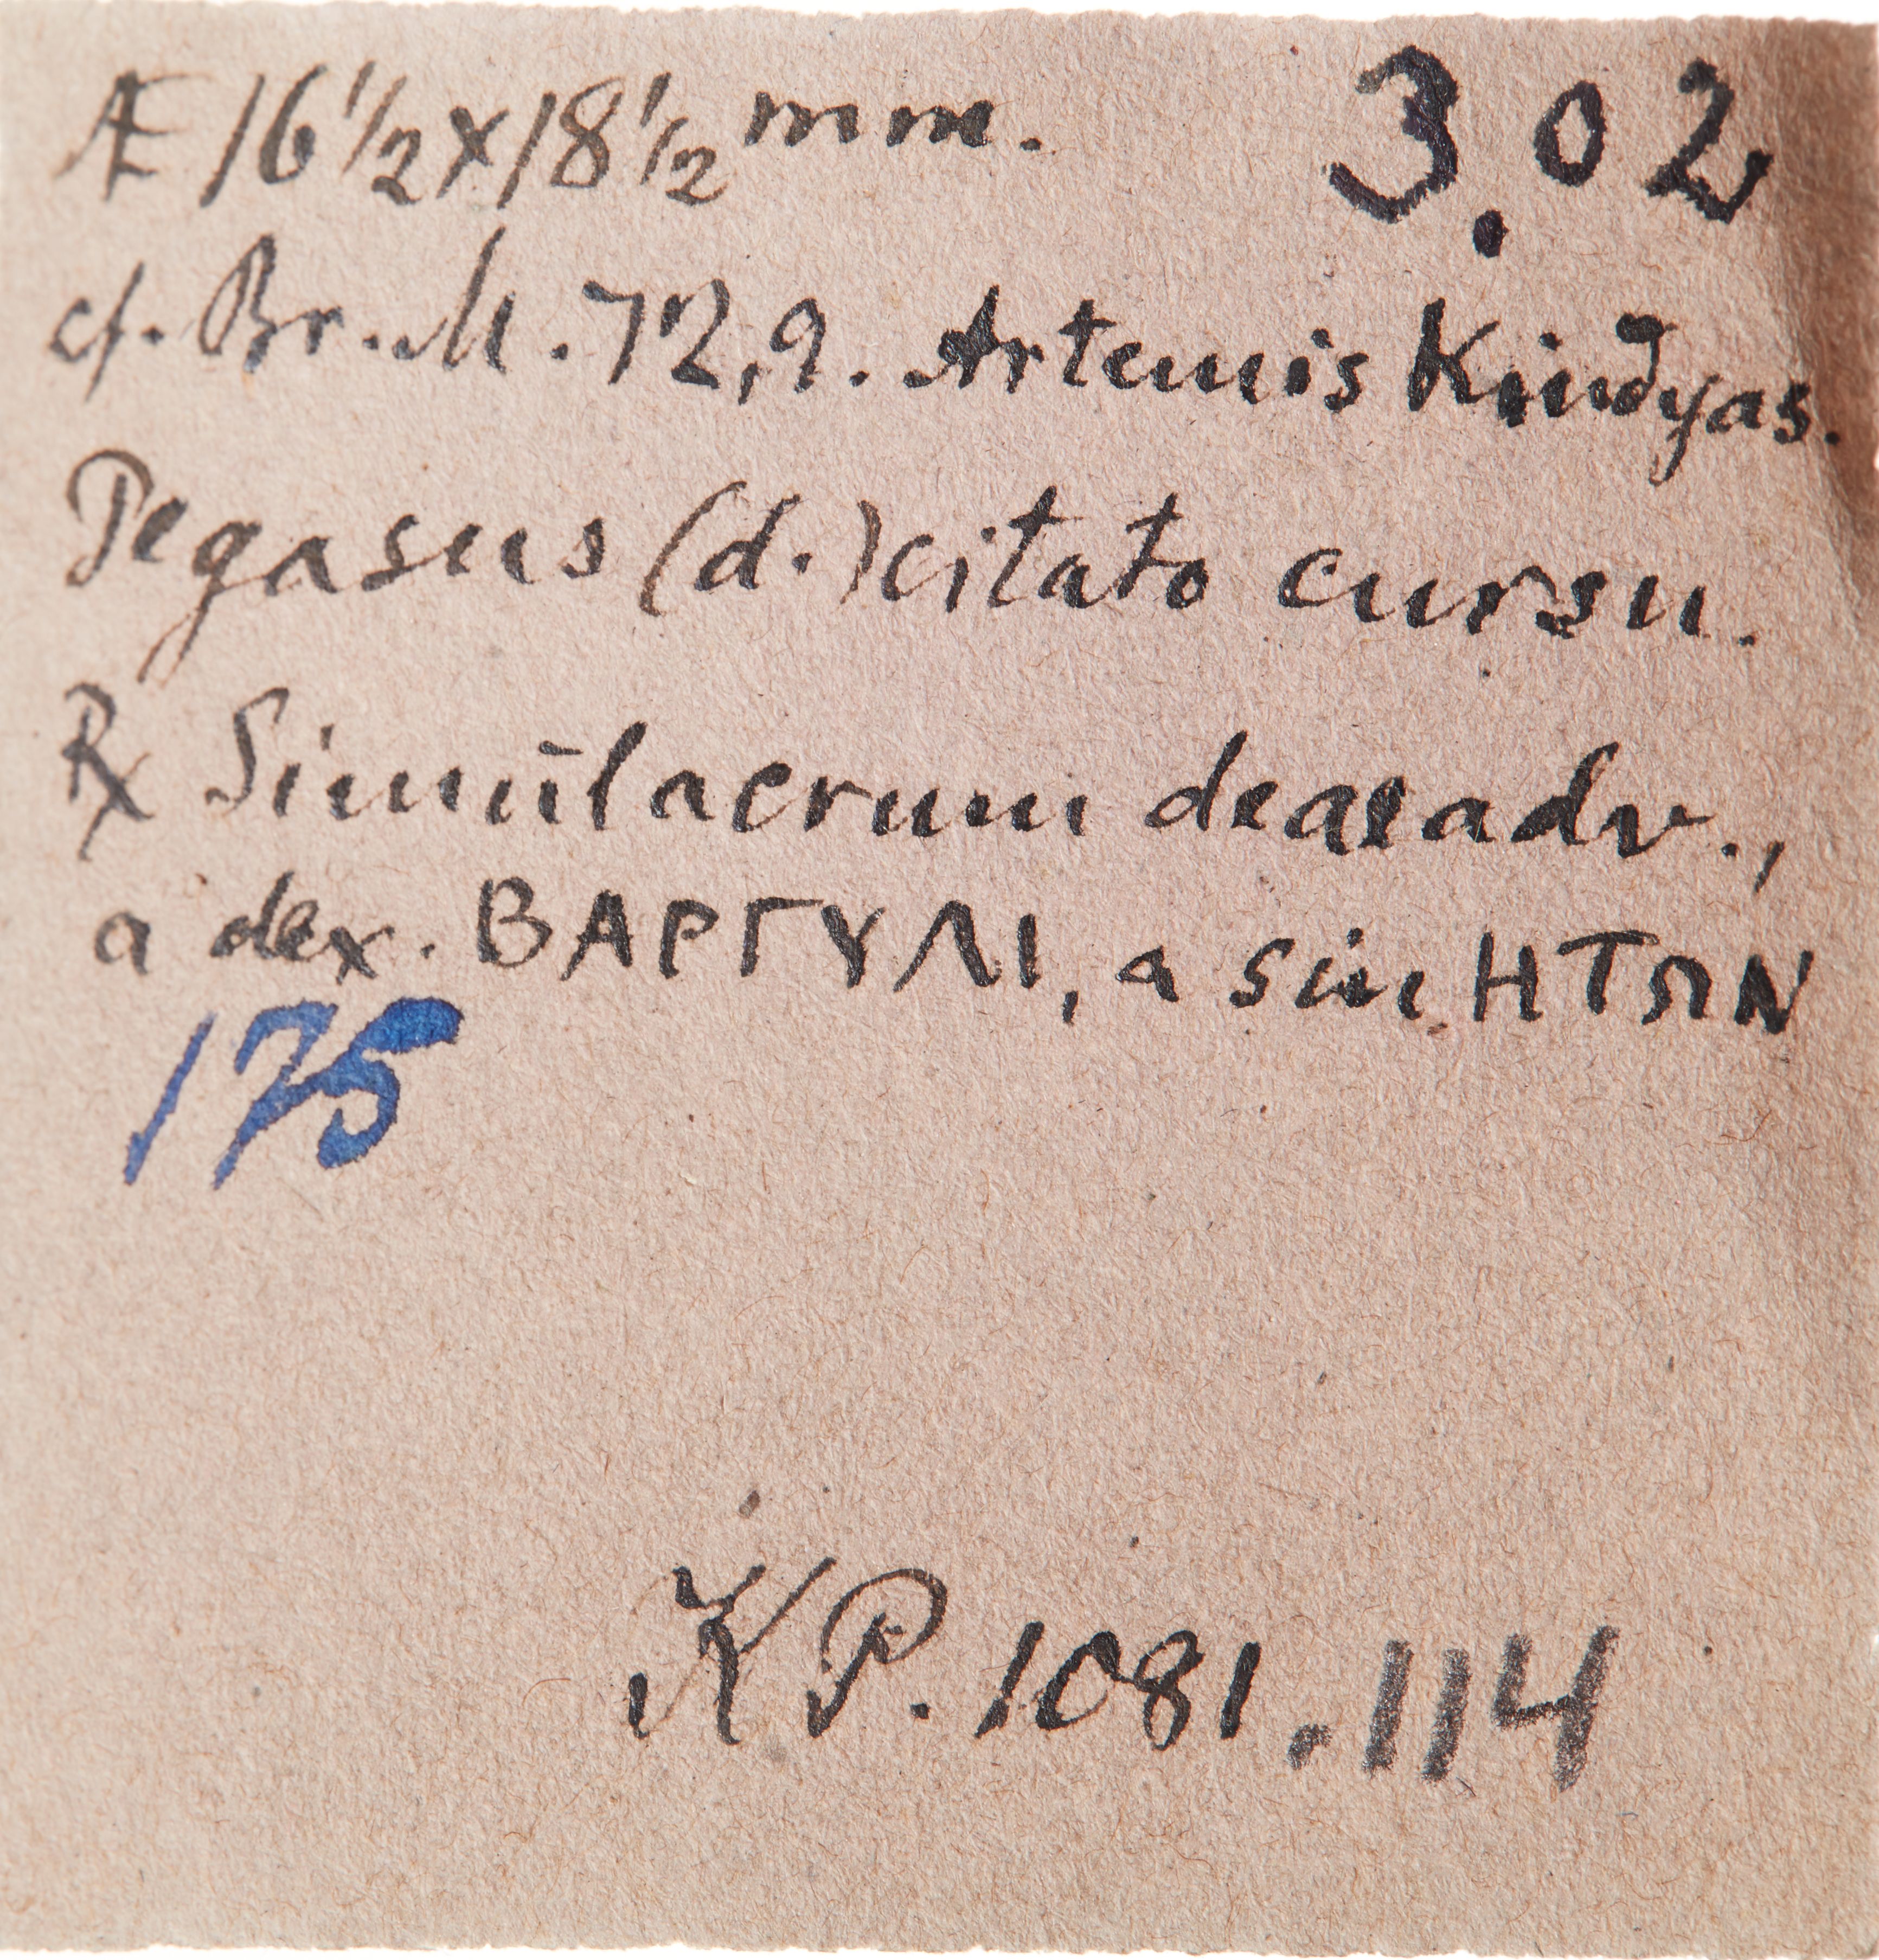 Æ 16 1/2 x 18 1/2 mm. 3.02
cf. Br. M. 72,9. Artemis Kindyas.
Pegasus (d.) citato cursu.
℞ Simulacrum deae adv.,
a dex. ΒΑΡΓΥΛΙ, a sin. ΗΤΩΝ
175
KP. 1081.114